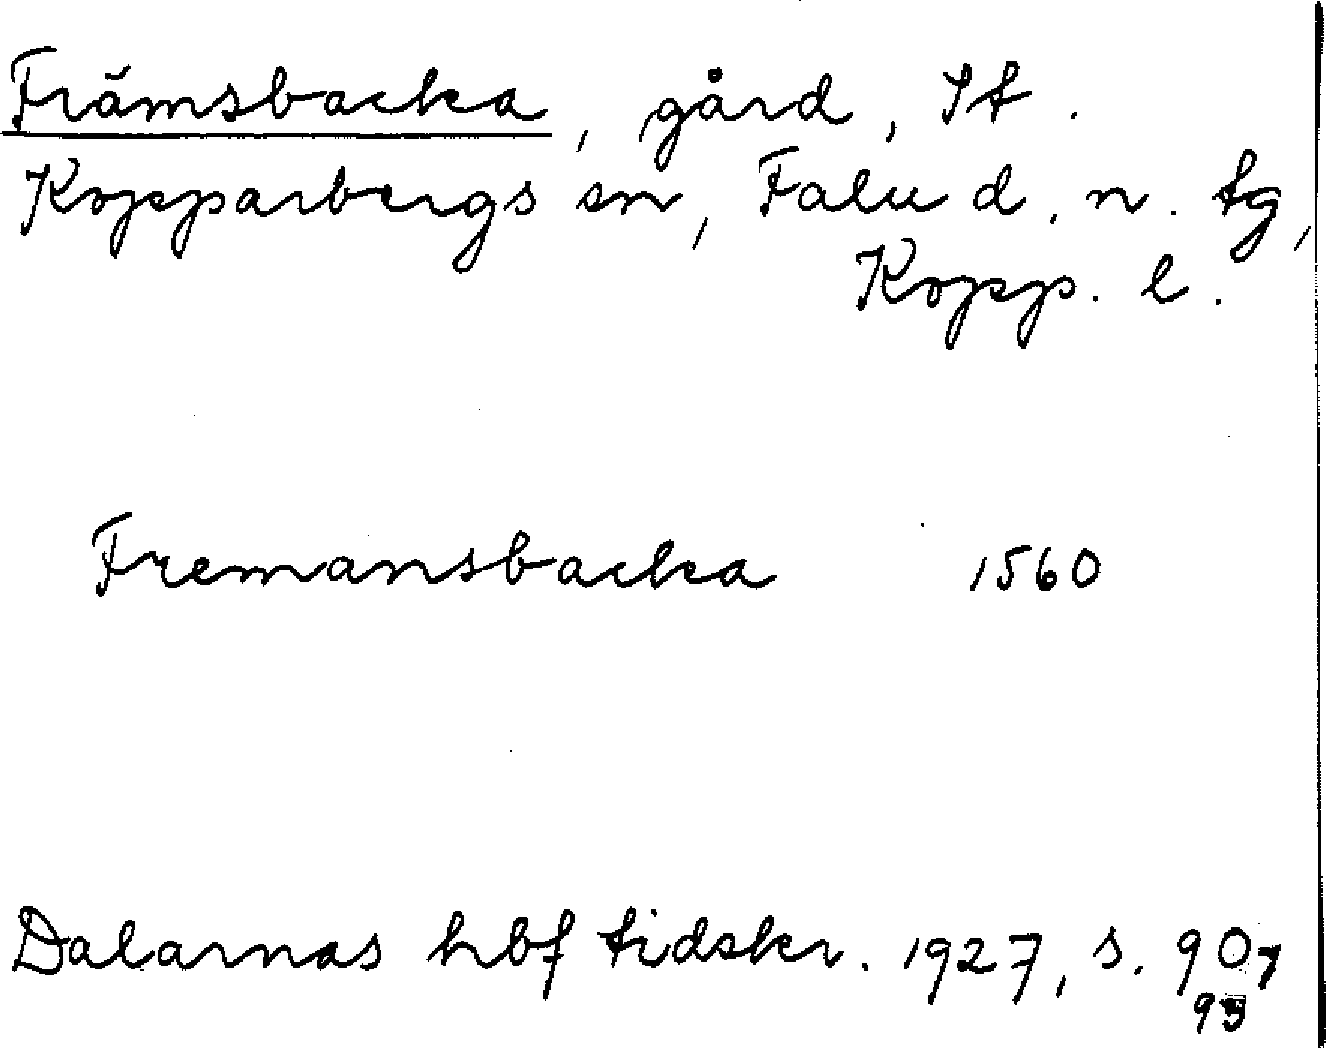 Främsbacka, gård, St.
Kopparbergs sn, Falu d. n. tg,
Kopp. l.
Fremansbacka 1560
Dalarnas hbf tidskr. 1927, s. 90,
93